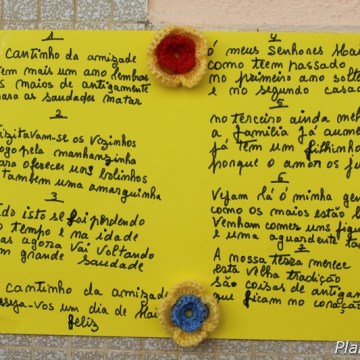 1
cantinho da amizade
tem mais um ano lembrar
os maios de antigamente
para as saudades matar
2
visitavam-se os vozinhos
logo pela manhanzinha
para oferecer uns bolinhos
também uma amarguinha
3
tudo isto se foi perdendo
o tempo e na idade
mas agora vai voltando
em grande saudade
cantinho da amizade
deseja-vos um dia de Maio
feliz
4
ó meus Senhores Maio
como teem passado
no primeiro ano solte
e no segundo casado
5
no terceiro ainda melh
a familia já aumen
já têm um filhinho
porque o amor os ju
6
Vejam lá ó minha gen
como os maios estão
Venham comers uns fig
e uma aguardente
A nossa terra merece
esta velha tradição
são coisas de antigam
que ficam no coração
Pla